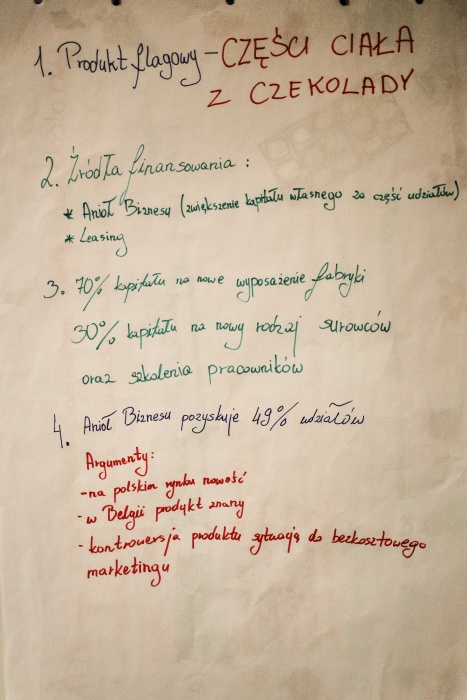 1. Produkt flagowy – CZĘŚCI CIAŁA
Z CZEKOLADY
2. Źródła finansowania :
* Anioł Biznesu (zwiększenie kapitału własnego za część udziałów)
* Leasing
3. 70% kapitału na nowe wyposażenie fabryki
30% kapitału na nowy rodzaj surowców
oraz szkolenia pracowników
4. Anioł Biznesu pozyskuje 49% udziałów
Argumenty:
- na polskim rynku nowość
- w Belgii produkt znany
- kontrowersja produktu sytuacją do bezkosztowego
marketingu